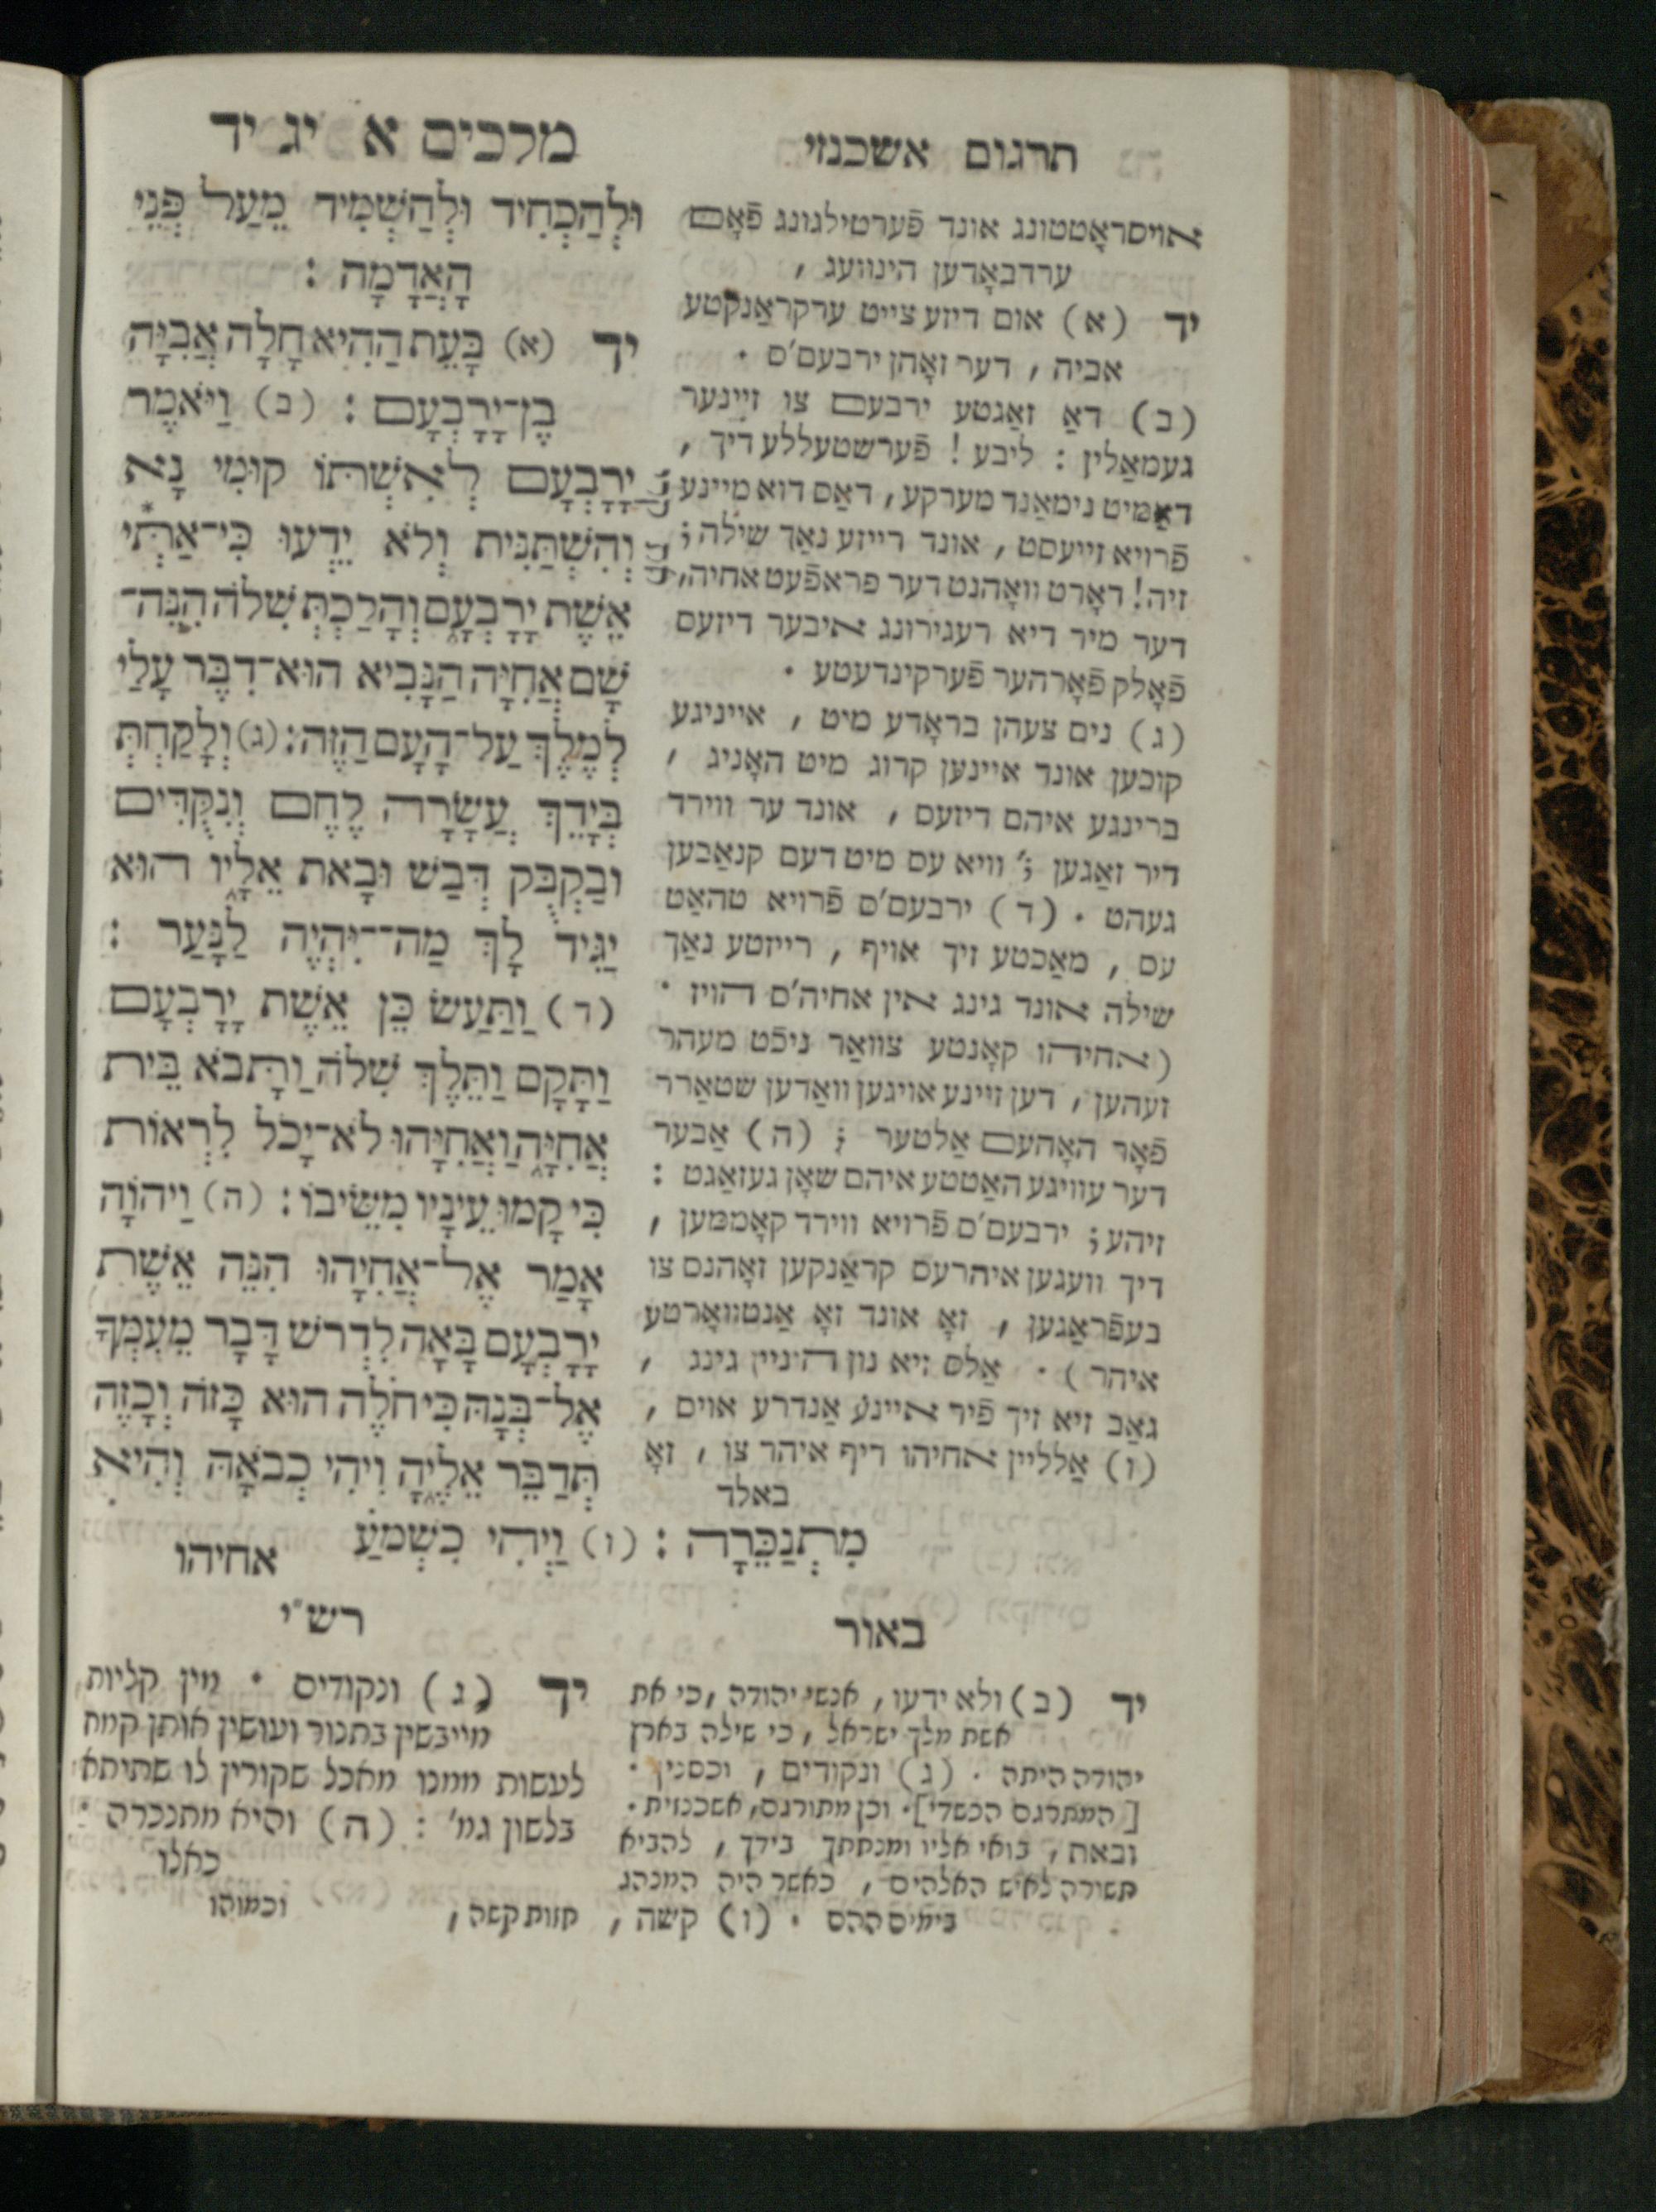 תרגום אשכנזי
אויסראָטטונג אונד פֿערטילגונג פֿאָם
ערדבאָדען הינוועג ,
יד (א) אום דיזע צייט ערקראַנקטע
אביה , דער זאָהן ירבעם'ס .
(ב) דאַ זאַגטע ירבעם צו זיינער
געמאַלין : ליבע ! פֿערשטעללע דיך ,
דאַמיט נימאַנד מערקע, דאַס דוא מיינע
פֿרויא זייעסט , אונד רייזע נאַך שילה ;
זיה! דאָרט וואָהנט דער פראפֿעט אחיה,
דער מיר דיא רעגירונג איבער דיזעם
פֿאָלק פֿאָרהער פֿערקינדעטע .
(ג) נים צעהן בראָדע מיט , אייניגע
קוכען אונד איינען קרוג מיט האָניג ,
ברינגע איהם דיזעם , אונד ער ווירד
דיר זאַגען ; וויא עס מיט דעם קנאַבען
געהט . (ד) ירבעם'ס פֿרויא טהאַט
עס , מאַכטע זיך אויף , רייזטע נאַך
שילה אונד גינג אין אחיה'ס הויז .
(אחיהו קאָנטע צוואַר ניכֿט מעהר
זעהען , דען זיינע אויגען וואַדען שטאַרר
פֿאָר האָהעם אַלטער ; (ה) אַבער
דער עוויגע האַטטע איהם שאָן געזאַגט :
זיהע ; ירבעם'ס פֿרויא ווירד קאָממען ,
דיך וועגען איהרעס קראַנקען זאָהנס צו
בעפֿראַגען , זאָ אונד זאָ אַנטוואָרטע
איהר ) . אַלס זיא נון היניין גינג ,
גאַב זיא זיך פֿיר איינע אַנדרע אויס ,
(ו) אַלליין אחיהו ריף איהר צו , זאָ
באלד
מלכים א יג יד
וּלְהַכְחִיד וּלְהַשְׁמִיד מֵעַל פְּנֵי
הָאֲדָמָה :
יד (א) בָּעֵת הַהִיא חָלָה אֲבִיָּה
בֶן־יָרָבְעָם : (ב) וַיֹּאמֶר
יָרָבְעָם לְאִשְׁתּוֹ קוּמִי נָא
וְהִשְׁתַּנִּית וְלֹא יֵדְעוּ כִּי־אַתְּי
אֵשֶׁת יָרָבְעָם וְהָלַכְתְּ שִׁלֹה הִנֵּה־
שָׁם אֲחִיָּה הַנָּבִיא הוּא־דִבֶּר עָלַי
לְמֶלֶךְ עַל־הָעָם הַזֶּה : (ג) וְלָקַחַתְּ
בְּיָדֵךְ עֲשָׂרָה לֶחֶם וְנִקֻּדִים
וּבַקְבֻּק דְּבַשׁ וּבָאת אֵלָיו הוּא
יַגִּיד לָךְ מַה־יִּהְיֶה לַנָּעַר :
(ד) וַתַּעַשׂ כֵּן אֵשֶׁת יָרָבְעָם
וַתָּקָם וַתֵּלֶךְ שִׁלֹה וַתָּבֹא בֵּית
אֲחִיָּה וַאֲחִיָּהוּ לֹא־יָכֹל לִרְאוֹת
כִּי קָמוּ עֵינָיו מִשֵּׂיבוֹ : (ה) וַיהוָֹה
אָמַר אֶל־אֲחִיָּהוּ הִנֵּה אֵשֶׁת
יָרָבְעָם בָּאָה לִדְרֹשׁ דָּבָר מֵעִמְּךָ
אֶל־בְּנָהּ כִּי חֹלֶה הוּא כָּזֹה וְכָזֶה
תְּדַבֵּר אֵלֶיהָ וִיהִי כְבֹאָהּ וְהִיא
מִתְנַכֵּרָה : (ו) וַיְהִי כִשְׁמֹעַ
אחיהו
באור
יד (ב) ולא ידעו , אנשי יהודה , כי את
אשת מלך ישראל , כי שילה בארץ
יהודה היתה . (ג) ונקודים , וכסנין .
[המתרגם הכשדי]. וכן מתורגם, אשכנזית .
ובאת , בואי אליו ומנחתך בידך , להביא
תשורה לאיש האלהים , כאשר היה המנהג
בימים ההם . (ו) קשה , חזות קשה ,
רש״י
יד (ג) ונקודים . מין קליות
מייבשין בתנור ועושין אותן קמח
לעשות ממנו מאכל שקורין לו שתיתא
בלשון גמ' : (ה) והיא מתנכרה :
כאלו
וכמוהו